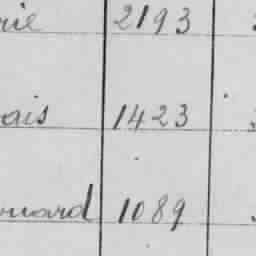 rie 2193
ais 1423
ouard 1089